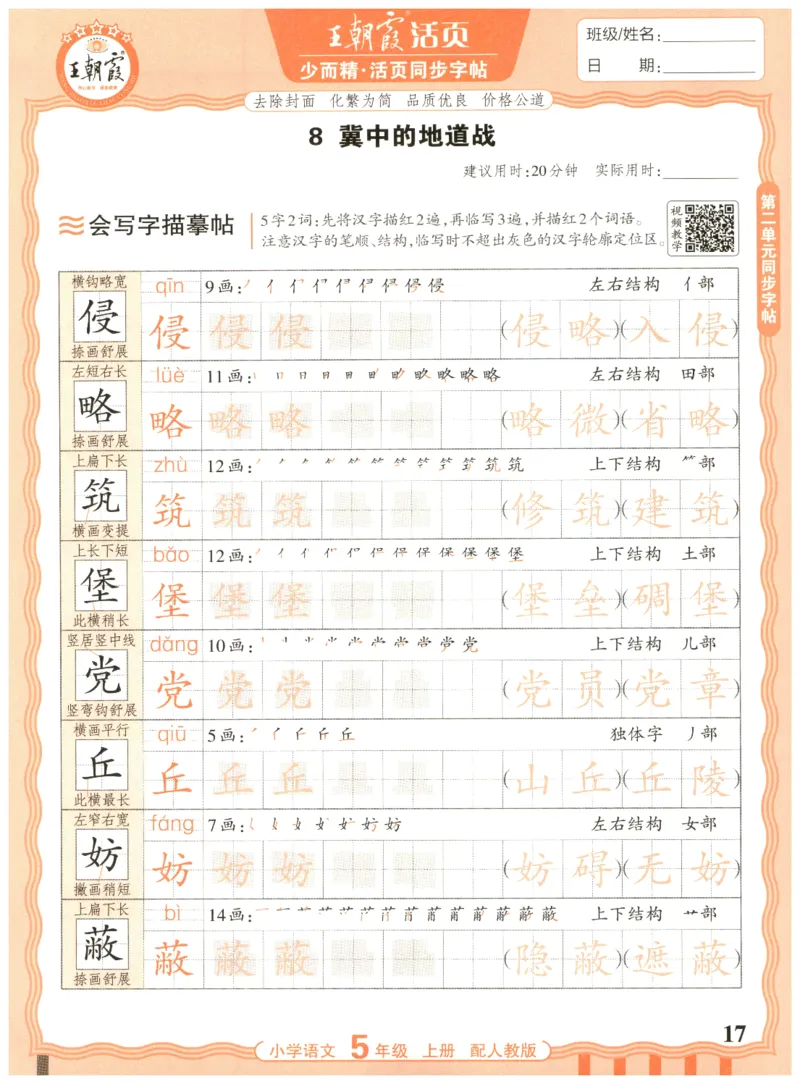 王朝霞
王朝霞活页
少而精·活页同步字帖
班级/姓名:
日 期:
去除封面 化繁为简 品质优良 价格公道
8 冀中的地道战
建议用时:20分钟 实际用时:
会写字描摹帖
5字2词:先将汉字描红2遍,再临写3遍,并描红2个词语。
注意汉字的笔顺、结构,临写时不超出灰色的汉字轮廓定位区。
视频教学
第二单元同步字帖
横钩略宽
侵
捺画舒展
qīn 9画: 侵 左右结构 亻部
侵 侵 侵 (侵略)(入侵)
左短右长
略
捺画舒展
lüè 11画: 略 左右结构 田部
略 略 略 (略微)(省略)
上扁下长
筑
横画变提
zhù 12画: 筑 上下结构 ⺮部
筑 筑 筑 (修筑)(建筑)
上长下短
堡
此横稍长
bǎo 12画: 堡 上下结构 土部
堡 堡 堡 (堡垒)(碉堡)
竖居竖中线
党
竖弯钩舒展
dǎng 10画: 党 上下结构 儿部
党 党 党 (党员)(党章)
横画平行
丘
此横最长
qiū 5画: 丘 独体字 丿部
丘 丘 丘 (山丘)(丘陵)
左窄右宽
妨
撇画稍短
fáng 7画: 妨 左右结构 女部
妨 妨 妨 (妨碍)(无妨)
上扁下长
蔽
捺画舒展
bì 14画: 蔽 上下结构 艹部
蔽 蔽 蔽 (隐蔽)(遮蔽)
17
小学语文 5年级 上册 配人教版